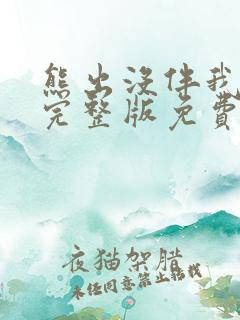 熊出没伴我
完整版免费
夜猫架腊
未经同意禁止转载